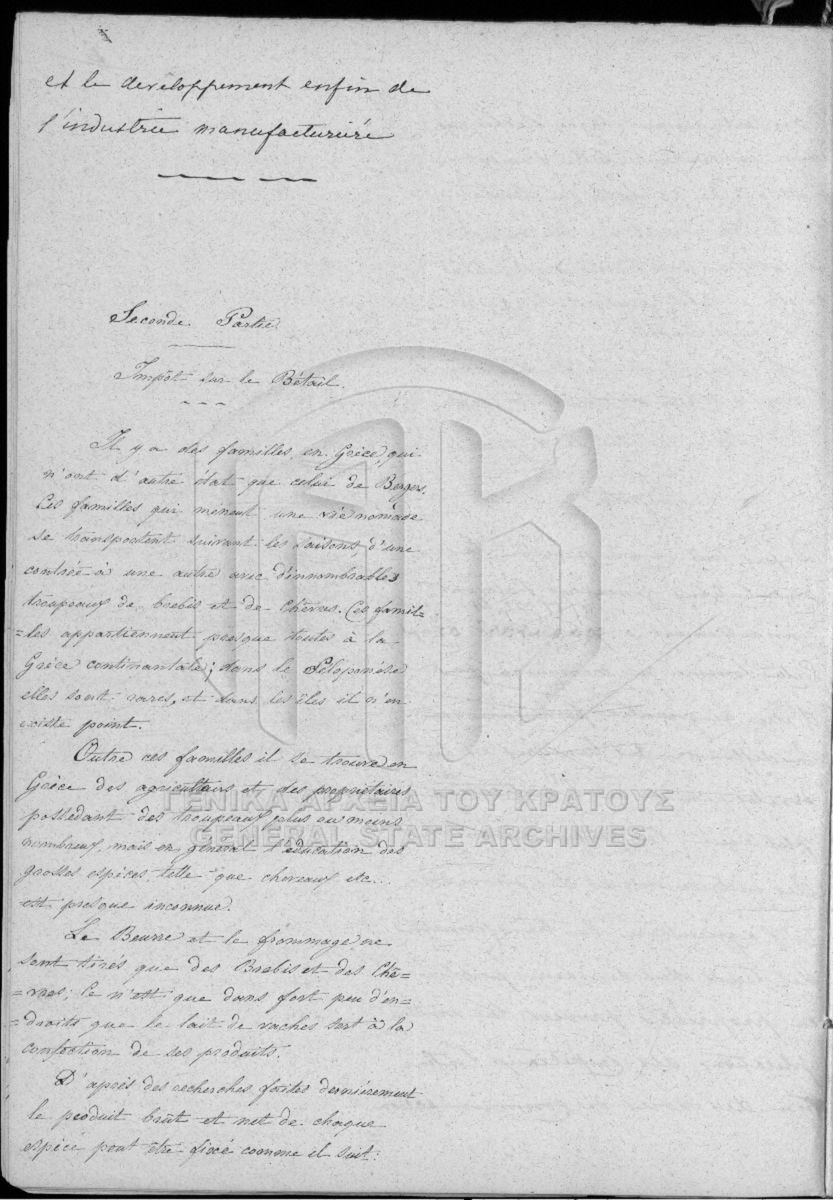 et le developpement enfin de
l'industrie manufacturière
Seconde Partie
Impôt sur le Bétail.
Il y a des familles, en Grèce, qui
n'ont d'autre état que celui de Bergers.
Ces familles qui mènent une vie nomade
se transportent suivant les saisons, d'une
contrée à une autre avec d'innombrables
troupeaux de brebis et de Chèvres. Ces famil=
=les appartiennent presque toutes à la
Grèce continantale; dans le Péloponèse
elles sont rares, et dans les îles il n'en
existe point.
Outre ces familles il se trouve en
Grèce des agriculteurs et des propriétaires
possedant des troupeaux plus ou moins
nombreux, mais en général l'éducation des
grosses espèces telle que chevaux etc..
est presque inconnue.
Le Beurre et le frommage ne
sont tirés que des Brebis et des Chè=
=vres; Ce n'est que dans fort peu d'en=
=droits que le lait de vaches sert à la
confection de ses produits.
D'après des recherches faites dernièrement
le produit brut et net de chaque
espèce peut être fixé comme il suit:
ΓΕΝΙΚΑ ΑΡΧΕΙΑ ΤΟΥ ΚΡΑΤΟΥΣ
GENERAL STATE ARCHIVES